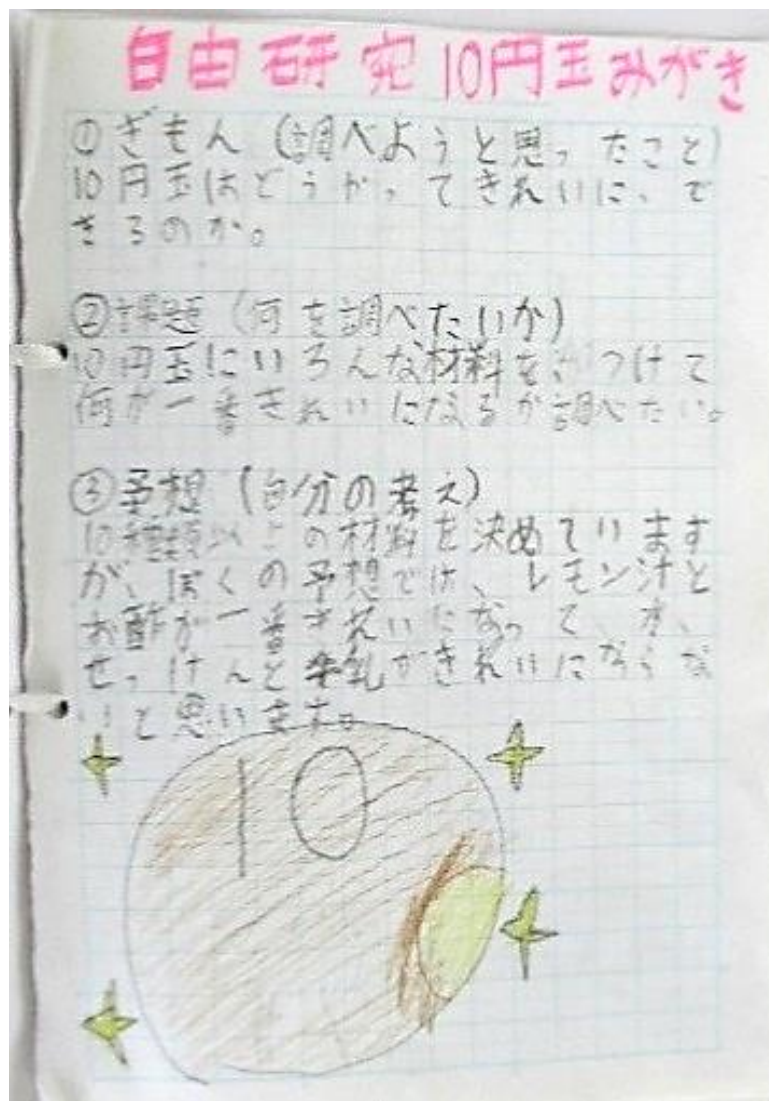 自由研究10円玉みがき
①ぎもん(調べようと思ったこと)
10円玉はどうやってきれいに、で
きるのか。
②課題(何を調べたいか)
10円玉にいろんな材料をつけて
何が一番きれいになるか調べたい。
③予想(自分の考え)
10種類以上の材料を決めています
が、ぼくの予想では、レモン汁と
お酢が一番きれいになって、
せっけんと牛乳がきれいにならな
いと思います。
10